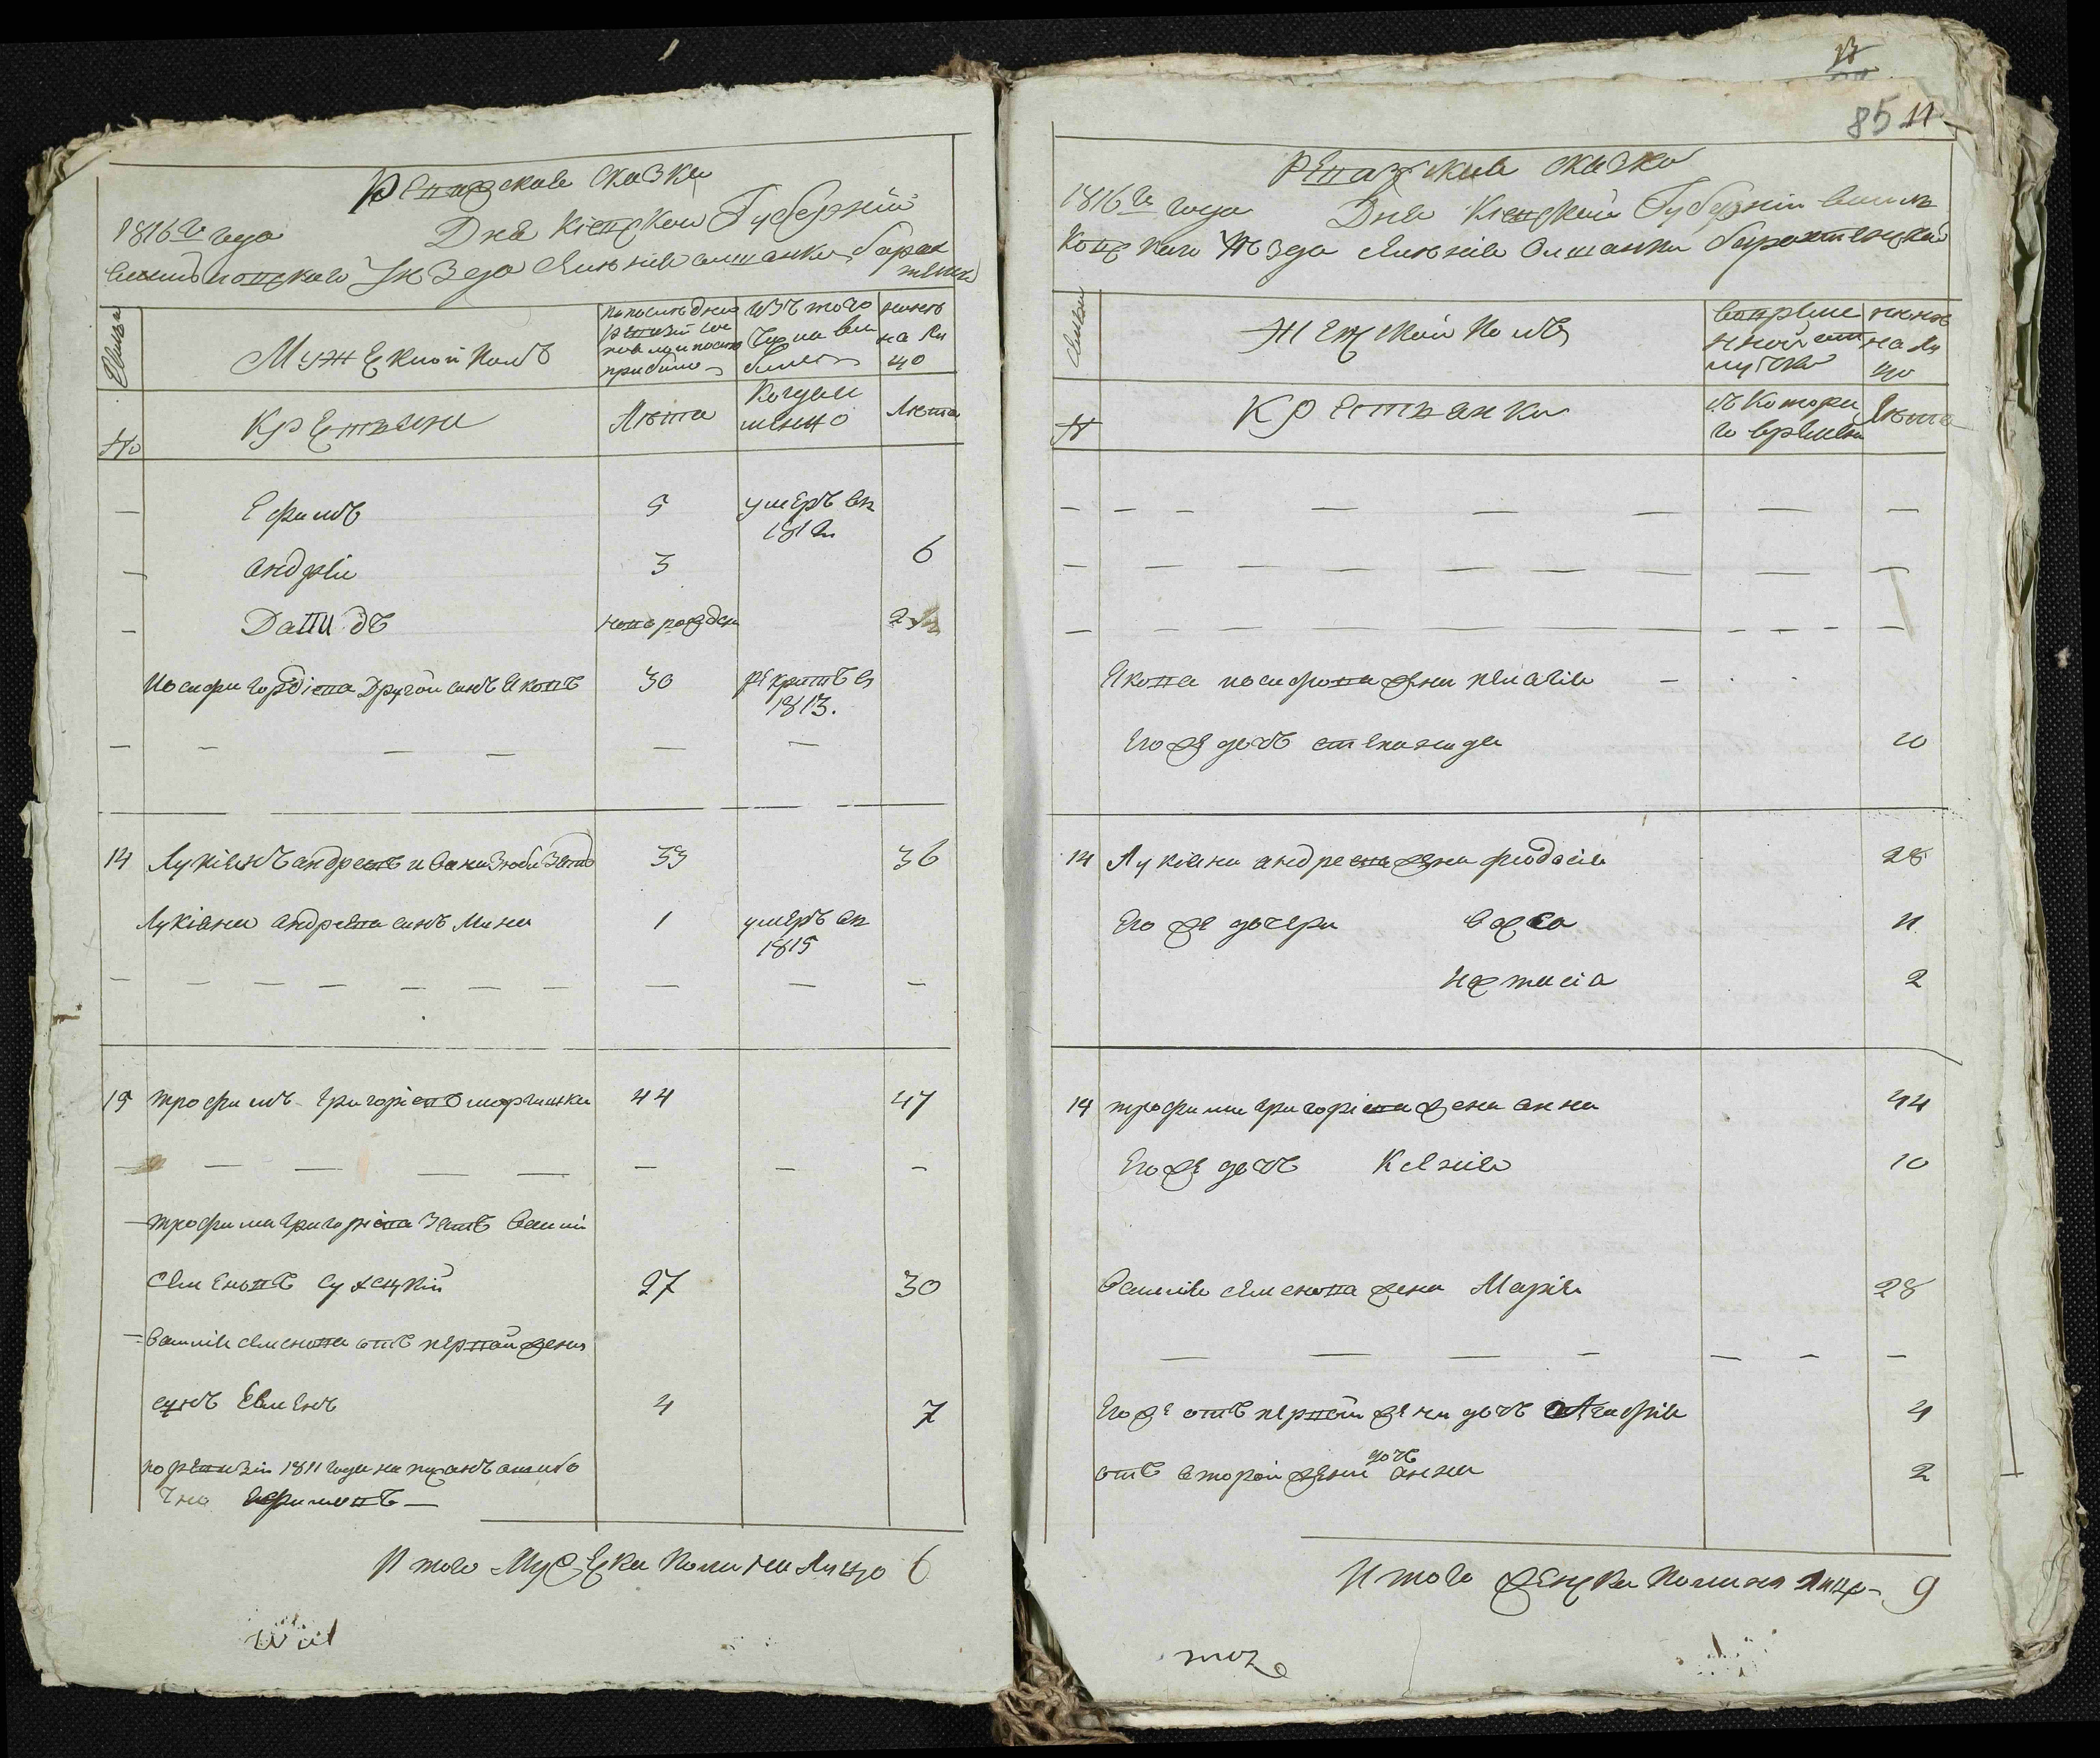 Ревизская сказка
1816го года Дня Киевской Губернии
Васильковского уезда имения олшанки барах
тянской
Семьи
Мужеский полъ
по последней ревизии состояло и после прибыло
Изъ того числа выбыло
ныне на лицо
№
Крестьяне
Лета
Когда именно
Лета
— Ефимъ 5 умеръ въ 1812м
— андрей 3 6
— Давидъ новорожден 2½
Иосифа гордиева Другой синъ Яковъ 30 рекрутъ въ 1813.
14 Лукиянъ андреевъ 33 36
Лукияна андреева синъ Мина 1 умеръ въ 1815
15 трофимъ григориевъ 44 47
трофима григориева зять василий
Семеновъ сухецкий 27 30
василия семенова отъ первой жены
сынъ Евменъ 4 7
по ревизии 1811 года написанъ ошибо
чно Ефимовъ —
Итого Мужеска пола на лицо 6
85 11
Ревизская сказка
1816го года Дня Киевской Губернии василь
ковского уезда имения Олшанки барахтянской
Семьи
Женский полъ
во временной отлучке
ныне на лицо
№
Крестьянки
съ которого времени
Лета
Якова иосифова жена пелагия —
Его же дочь степанида 10
14 Лукияна андреева жена феодосия 28
Его же дочери 11
2
14 трофима григориева жена анна 44
Его же дочь Ксения 10
василия семенова жена Мария 28
Его же отъ первой жены дочь Агафия 4
отъ второй жены дочь анна 2
Итого женска пола на лицо 9